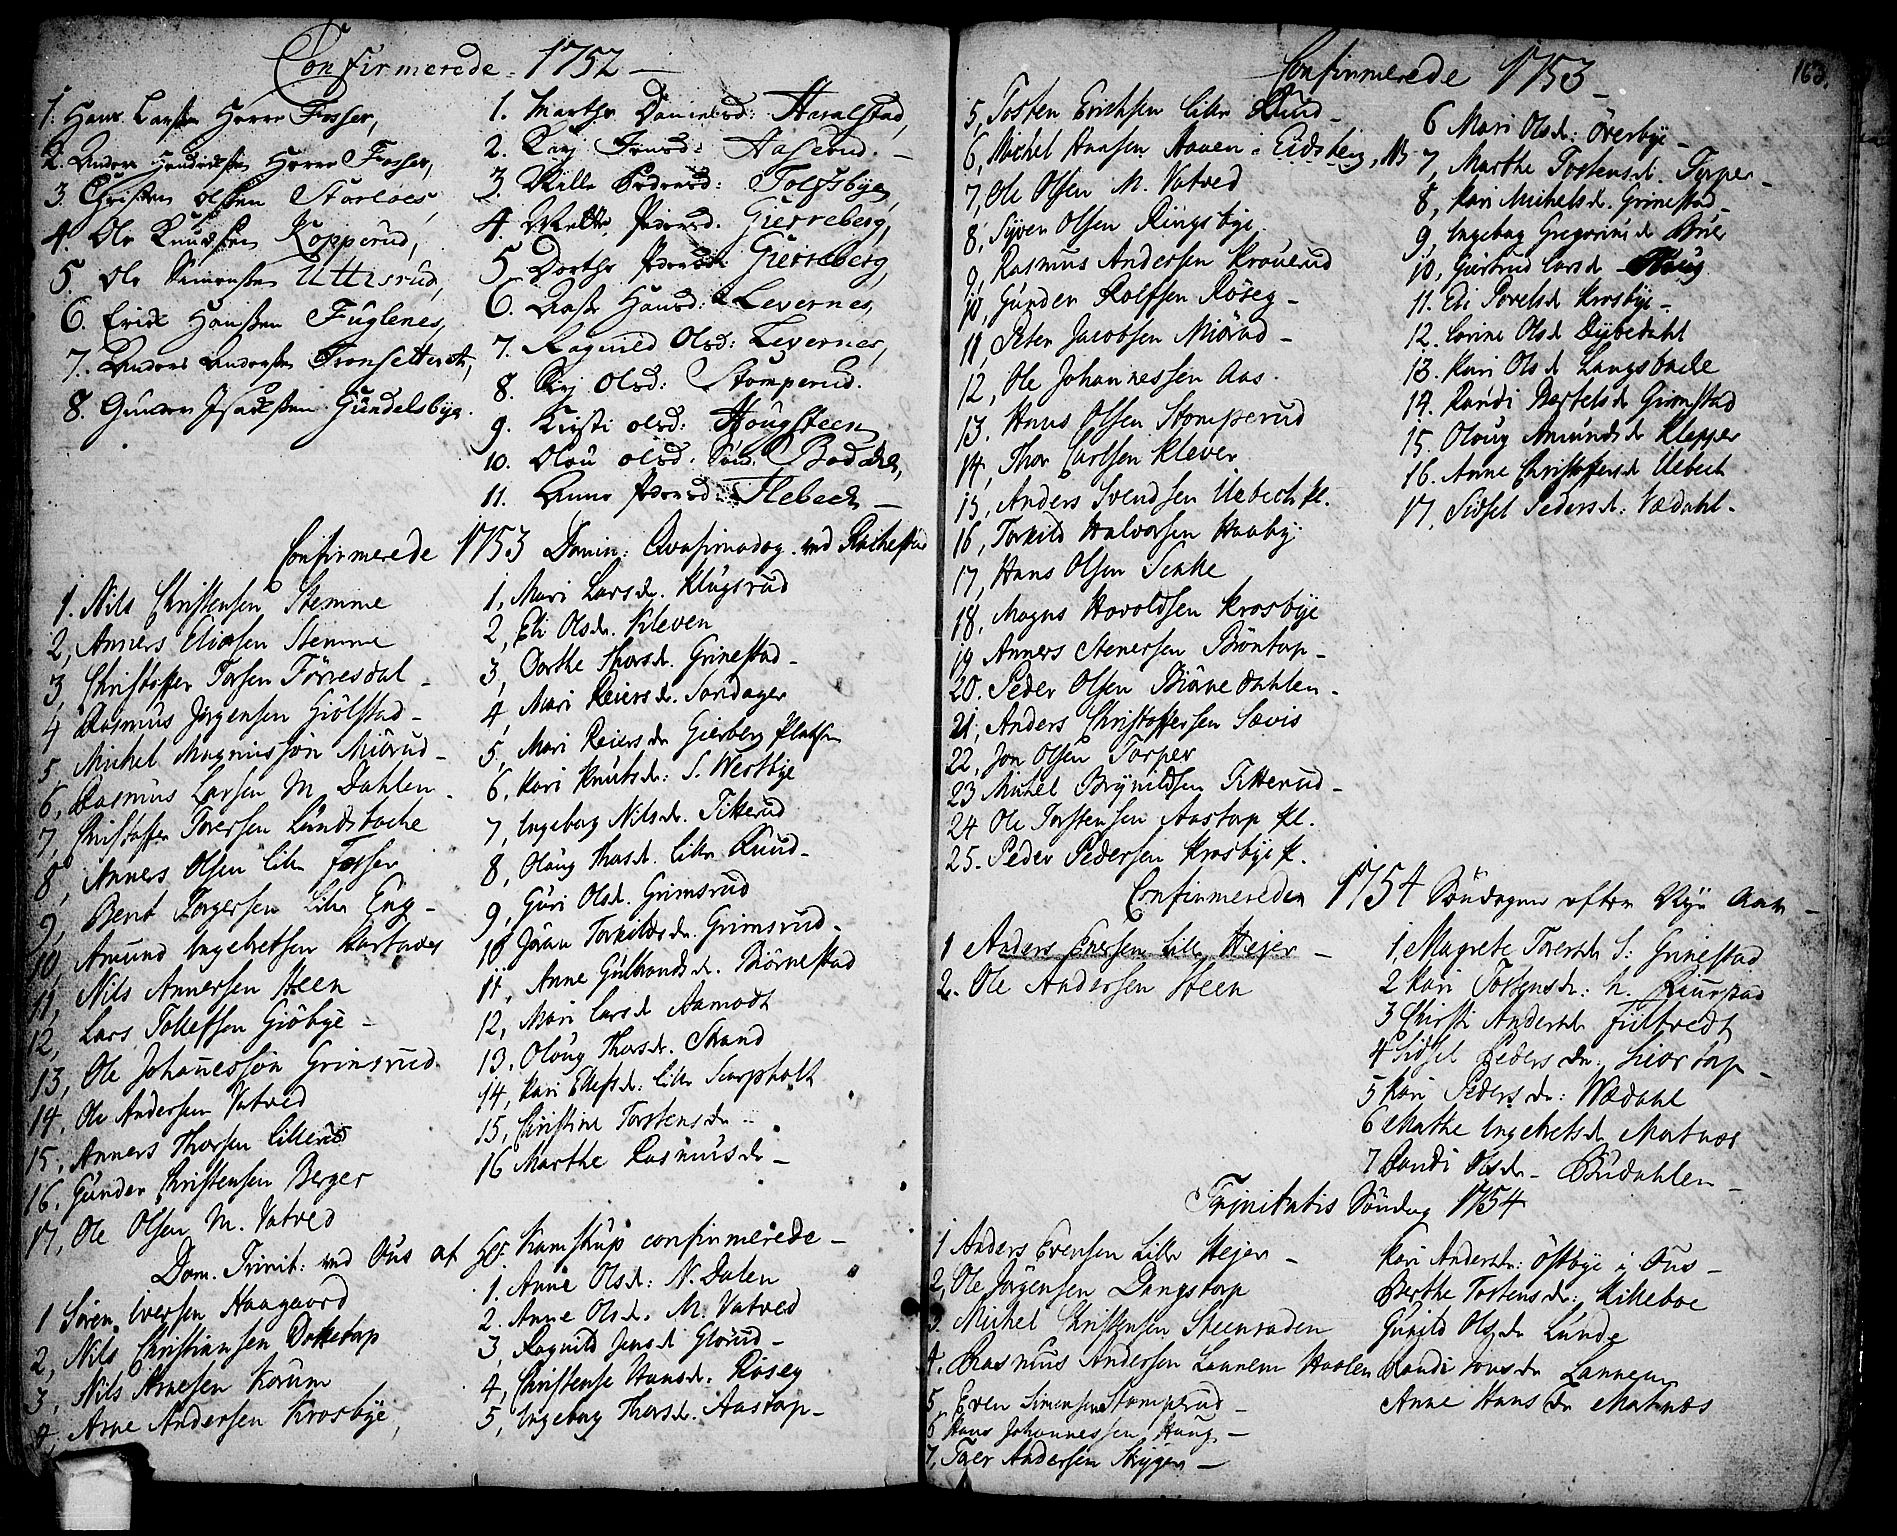 Confirmerede 1752
1. Hans Larssen Herre Fosser,
2. Anders Hendrichsen Herre Fosser,
3. Christen Olssen Storloes,
4. Ole Knudssen Kopperud,
5. Ole Simenssen Uttisrud,
6. Erich Hanssen Fuglenes,
7. Anders Anderssen Tronsetteret,
8. Gunder Isachssen Gundelsbye.
1. Marthe Danielsd: Haralstad,
2. Kirj Iensd: Aaserud.
3. Mille Pedersd: Tolfsbye,
4. Mette Pedersd. Gierreberg,
5. Dorthe Pedersd: Gierreberg,
6. Aase Hansd: Levernes,
7. Ragnild Olsd: Levernes,
8. Kirj Olsd: Stomperud.
9. Kirsti Olsd: Hougsteen
10. Olou Olsd: Bodahl,
11. Anne Pedersd: Ilebech
Confirmerede 1753 Domin: Qvasimodog. ved Rachestad
1. Nils Christensen Stemme
2, Anners Eliasen Stemme
3, Christoffer Torsen Törresdal
4 Rasmus Jörgensen Giölstad
5, Michel Magnussön Miörud
6, Rasmus Larsen M. Dahlen
7, Christoffer Torersen Lundebache
8, Anners Olsen Lille Fosser
9, Bent Torgersen Lille Eng
10, Amund Ingebretsen Kartnæs
11, Nils Annersen Steen
12, Lars Tollefsen Giöbye
13, Ole Johannessön Grimsrud
14, Ole Andersen Vatved
15, Anners Thorsen Lillerud
16. Gunder Christensen Berger
17, Ole Olsen M. Vatved
1, Mari Larsdr. Klugsrud
2, Eli Olsdr. Kleven
3, Dorthe Thorsdr. Grinestad
4, Mari Reiersdr. Sandager
5, Mari Reiersdr Gierberg Pladsen
6, Kari Knutsdr: S. Westbye
7, Ingeborg Nilsdr. Tikkerud
8, Oloug Thorsdr. Lille Ruud
9, Guri Olsdr. Grimsrud
10 Jöran Torkildsdr. Grimsrud
11, Anne Gulbrandsdr. Biörnestad
12, Mari Larsdr Aamodt
13. Oloug Thorsdr. Strand
14, Kari Ellefsdr: Lille Scarpholt
15, Christine Torstensdr
16 Marthe Rasmusdr
Dom. Trinit: ved Öus af Hr. Kamstrup confirmerede
1 Sören Iversen Haagaard
2, Nils Christiansen Dokketorp
3, Nils Arnesen Korum
4, Arne Andersen Krosbye,
1. Anne Olsdr: N. Dalen
2. Anne Olsdr. M. Vatved
3, Ragnild Jensdr Glörud
4, Christense Hansdr. Roseg
5, Ingeborg Thorsdr. Aastorp
Confirmerede 1753
163.
5, Tosten Erichsen Lille Ruud
6, Michel Hansen Haaen i Eidsberg, NB
7, Ole Olsen M. Vatved
8, Syver Olsen Ringsbye
9, Rasmus Andersen Krouerud
10, Gunder Rolfsen Röseg
11, Peter Jacobsen Miörud
12, Ole Johannessen Aas
13. Hans Olsen Stomperud
14, Thor Carlsen Klever
15, Anders Svendsen Uebech pl.
16, Torkild Halvorsen Haaby
17, Hans Olsen Senke
18, Magns Haroldsen Krosbye
19 Anners Stenersen Bröntorp
20. Peder Olsen Biörnedahlen
21, Anders Christoffersen Sævis
22, Jon Olsen Torper
23 Michel Brynildsen Tikkerud
24 Ole Torstensen Aastorp pl.
25. Peder Pedersen Krosbye p.
6 Mari Olsdr: Överbye
7, Marthe Tostensdr. Torper
8, Kari Michelsdr. Grinestad
9, Ingebor Gregoriusdr Brier
10, Giertrud Larsdr Haug
11. Eli Povelsdr Krosbye
12. Corine Olsdr Dybedahl
13. Kari Olsdr Langsbacke
14. Randi Bertelsdr Grinstad
15. Oloug Amundsdr Klepper
16. Anne Christoffersdr Uebech
17. Sidsel Pedersdr: Vædahl
Confirmereden 1754 Söndagen efter Nye Aar
1 Anders Evensen Lille Hejer
2. Ole Andersen Steen
1, Magrete Torersdr S: Grinestad
2 Kari Tostensdr: N. Ruurstad
3 Chirsti Andersdr Fultvedt
4 Sidsel Pedersdr: Liortorp
5 Kari Pedersdr: Wædahl
6 Marthe Ingebretsdr Mortnæs
7 Randi Olsdr Budahlen
Trinitatis Söndag 1754
1 Anders Evensen Lille Hejer
2, Ole Jörgensen Dangstorp
3. Michel Christensen Steenraden
4. Rasmus Andersen Lannem Haalen
5, Even Simensen Stomprud
6 Hans Johannessen Haug
7, Toer Andersen Strygen
Kari Andersdr: Östbye i Öus
Berthe Tostensdr: Kikkeboe
Gunild Olsdr Lunde
Randi Jonsdr Lannem
Anne Hansdr Mortnæs